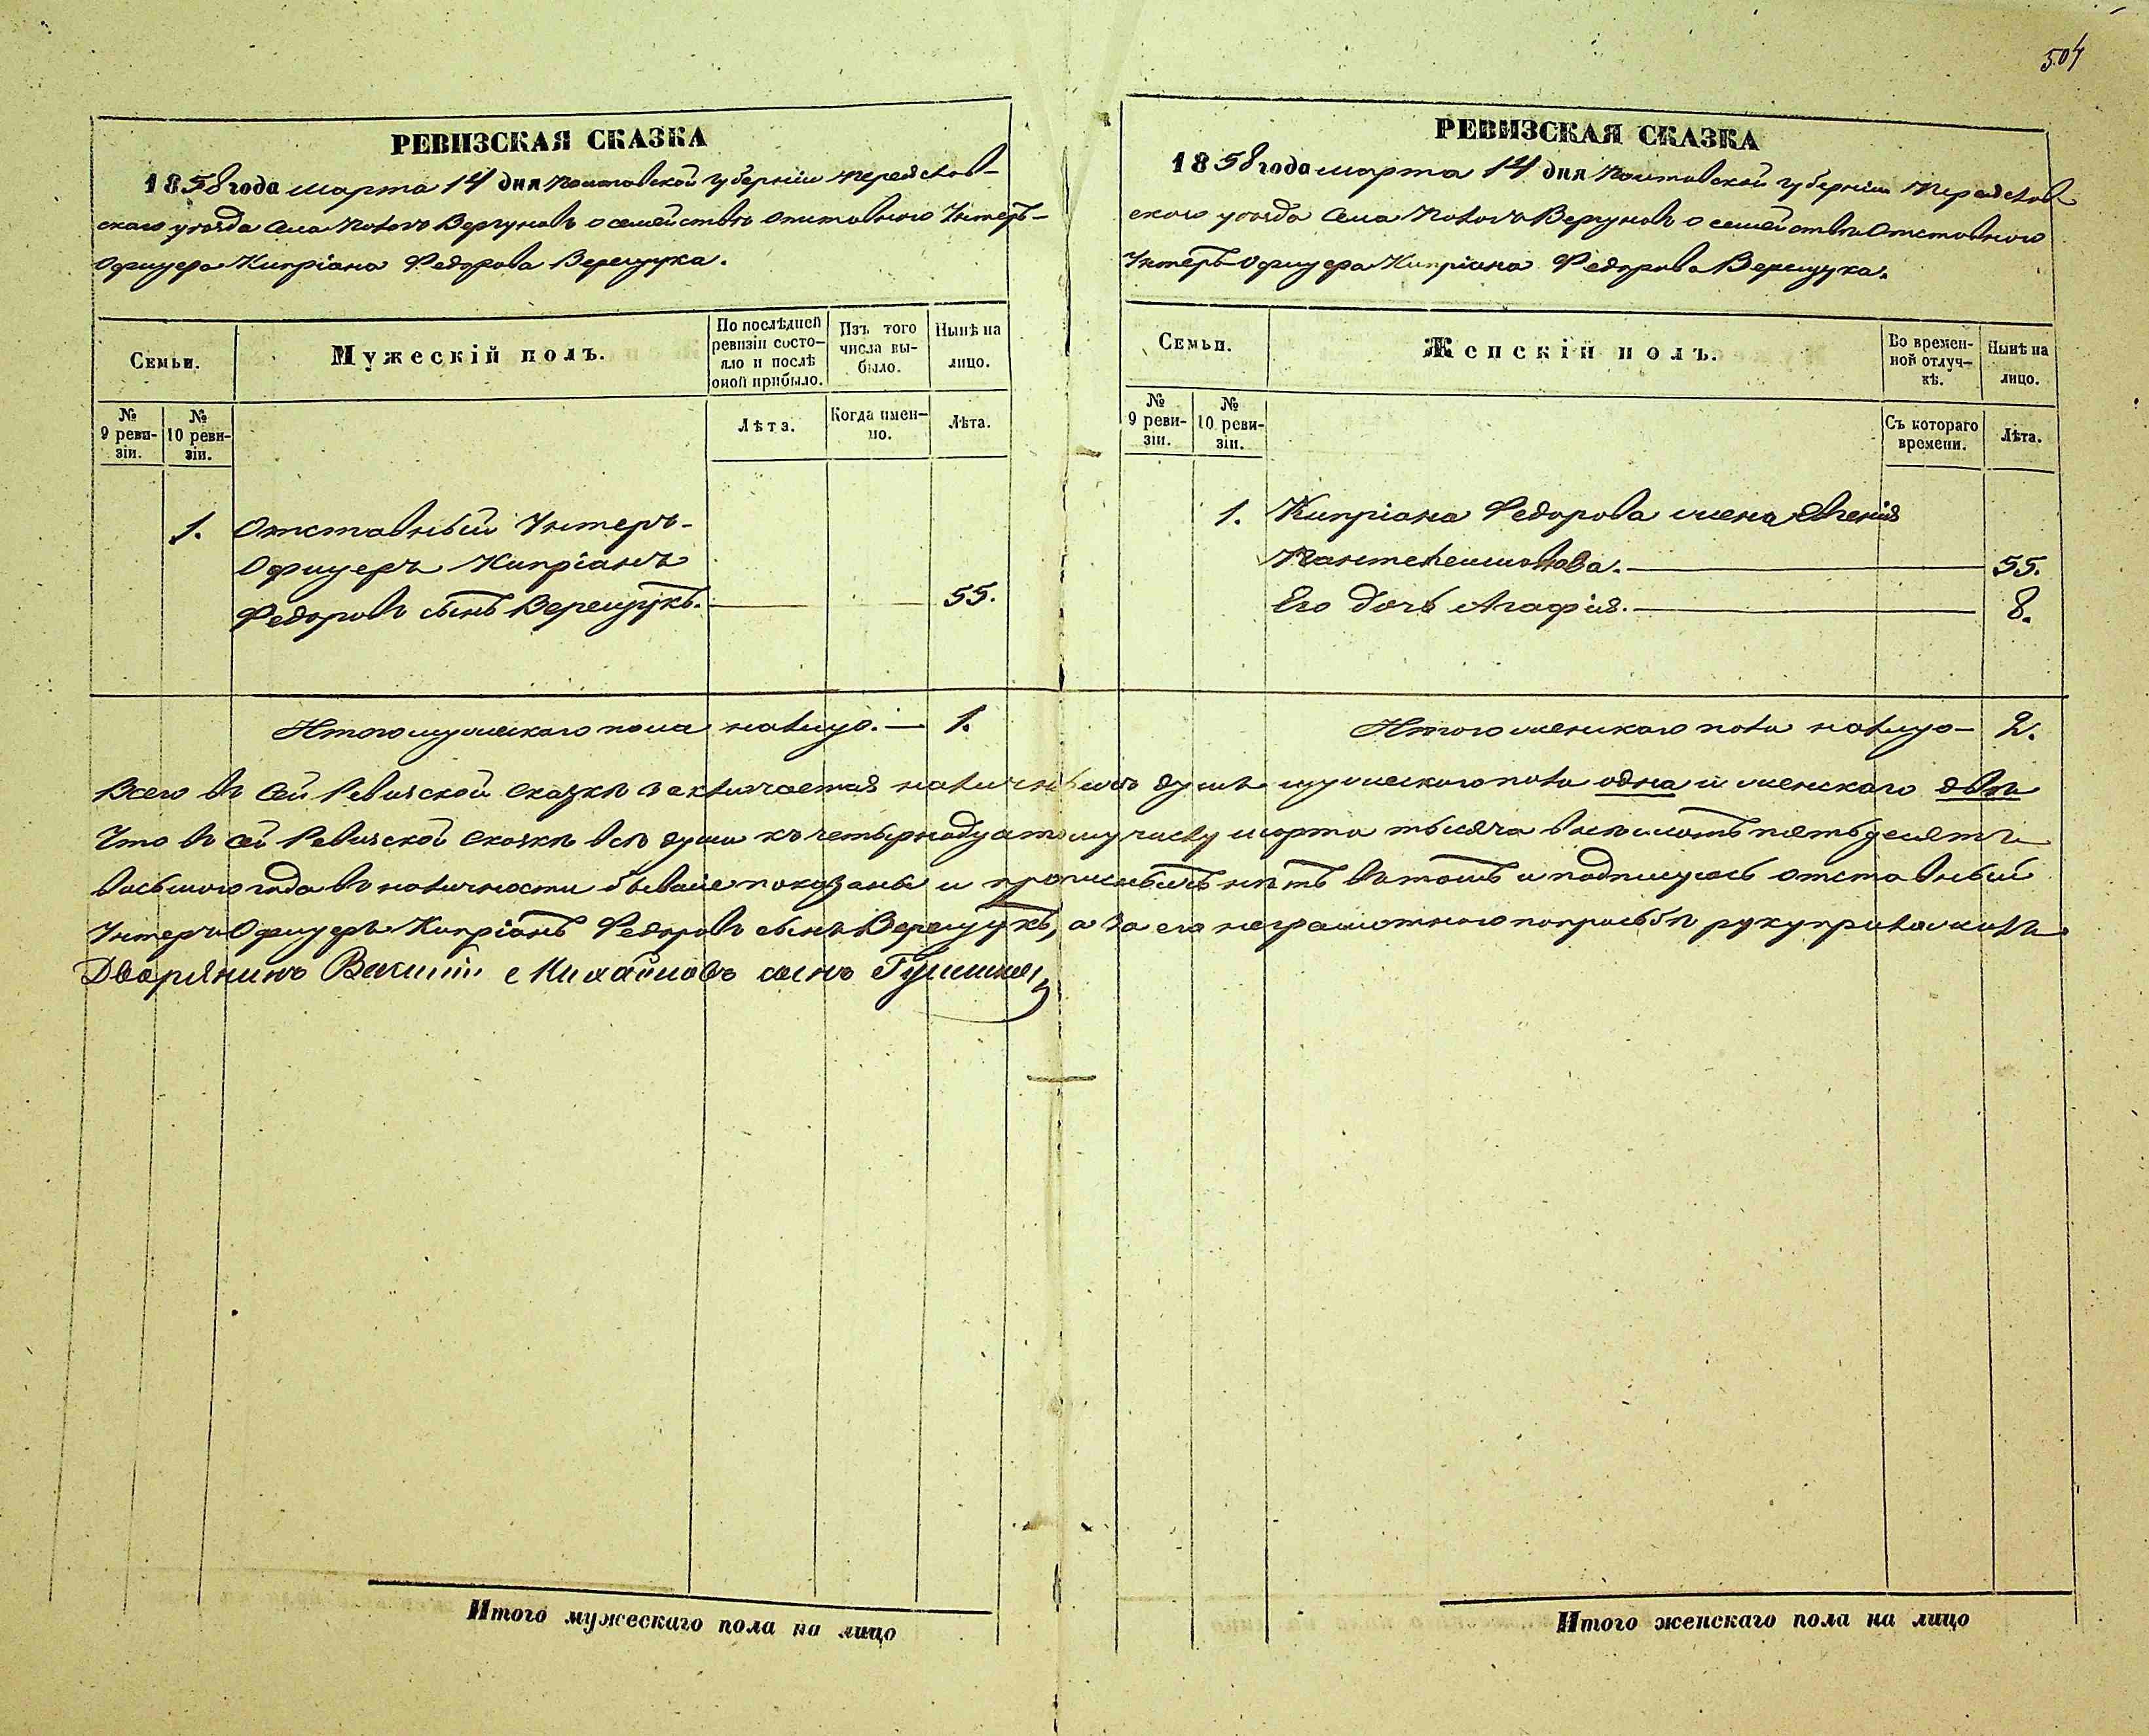 504
РЕВИЗСКАЯ СКАЗКА
1858 года марта 14 дня Полтавской губерніи Переяслов-
скаго уѣзда Села Малыхъ Вергуновъ о семействѣ отставного Унтеръ-
Офицера Кипріана Федорова Верещука.
Семьи.
Мужескій полъ.
По послѣдней
ревизіи состо-
яло и послѣ
оной прибыло.
Изъ того
числа вы-
было.
Нынѣ на
лицо.
№
9 реви-
зіи.
№
10 реви-
зіи.
Лѣта.
Когда имен-
но.
Лѣта.
1. Отставный Унтеръ-
Офицеръ Кипріанъ
Федоровъ сынъ Верещукъ. 55.
Итого мужескаго пола налицо. — 1.
РЕВИЗСКАЯ СКАЗКА
1858 года марта 14 дня Полтавской губерніи Переяслов-
скаго уѣзда Села Малыхъ Вергуновъ о семействѣ Отставного
Унтеръ-Офицера Кипріана Федорова Верещука.
Семьи.
Женскій полъ.
Во времен-
ной отлуч-
кѣ.
Нынѣ на
лицо.
№
9 реви-
зіи.
№
10 реви-
зіи.
Съ котораго
времени.
Лѣта.
1. Кипріана Федорова жена Евгенія
Пантелеимонова. 55.
Его дочь Агафія. 8.
Итого женскаго пола налицо — 2.
Всего въ сей Ревизской сказкѣ заключается наличныхъ душъ мужескаго пола одна и женскаго двѣ
Что въ сей Ревизской сказкѣ всѣ души къ четырнадцатому числу марта тысяча восемьсотъ пятьдесятъ
восьмого года въ наличности бывшіе показаны и прописныхъ нѣтъ въ томъ и подпишусь отставный
Унтеръ Офицеръ Кипріанъ Федоровъ сынъ Верещукъ, а за его неграмотного по просьбѣ руку приложилъ
Дворянинъ Василій Михайловъ сынъ
Итого мужескаго пола на лицо
Итого женскаго пола на лицо